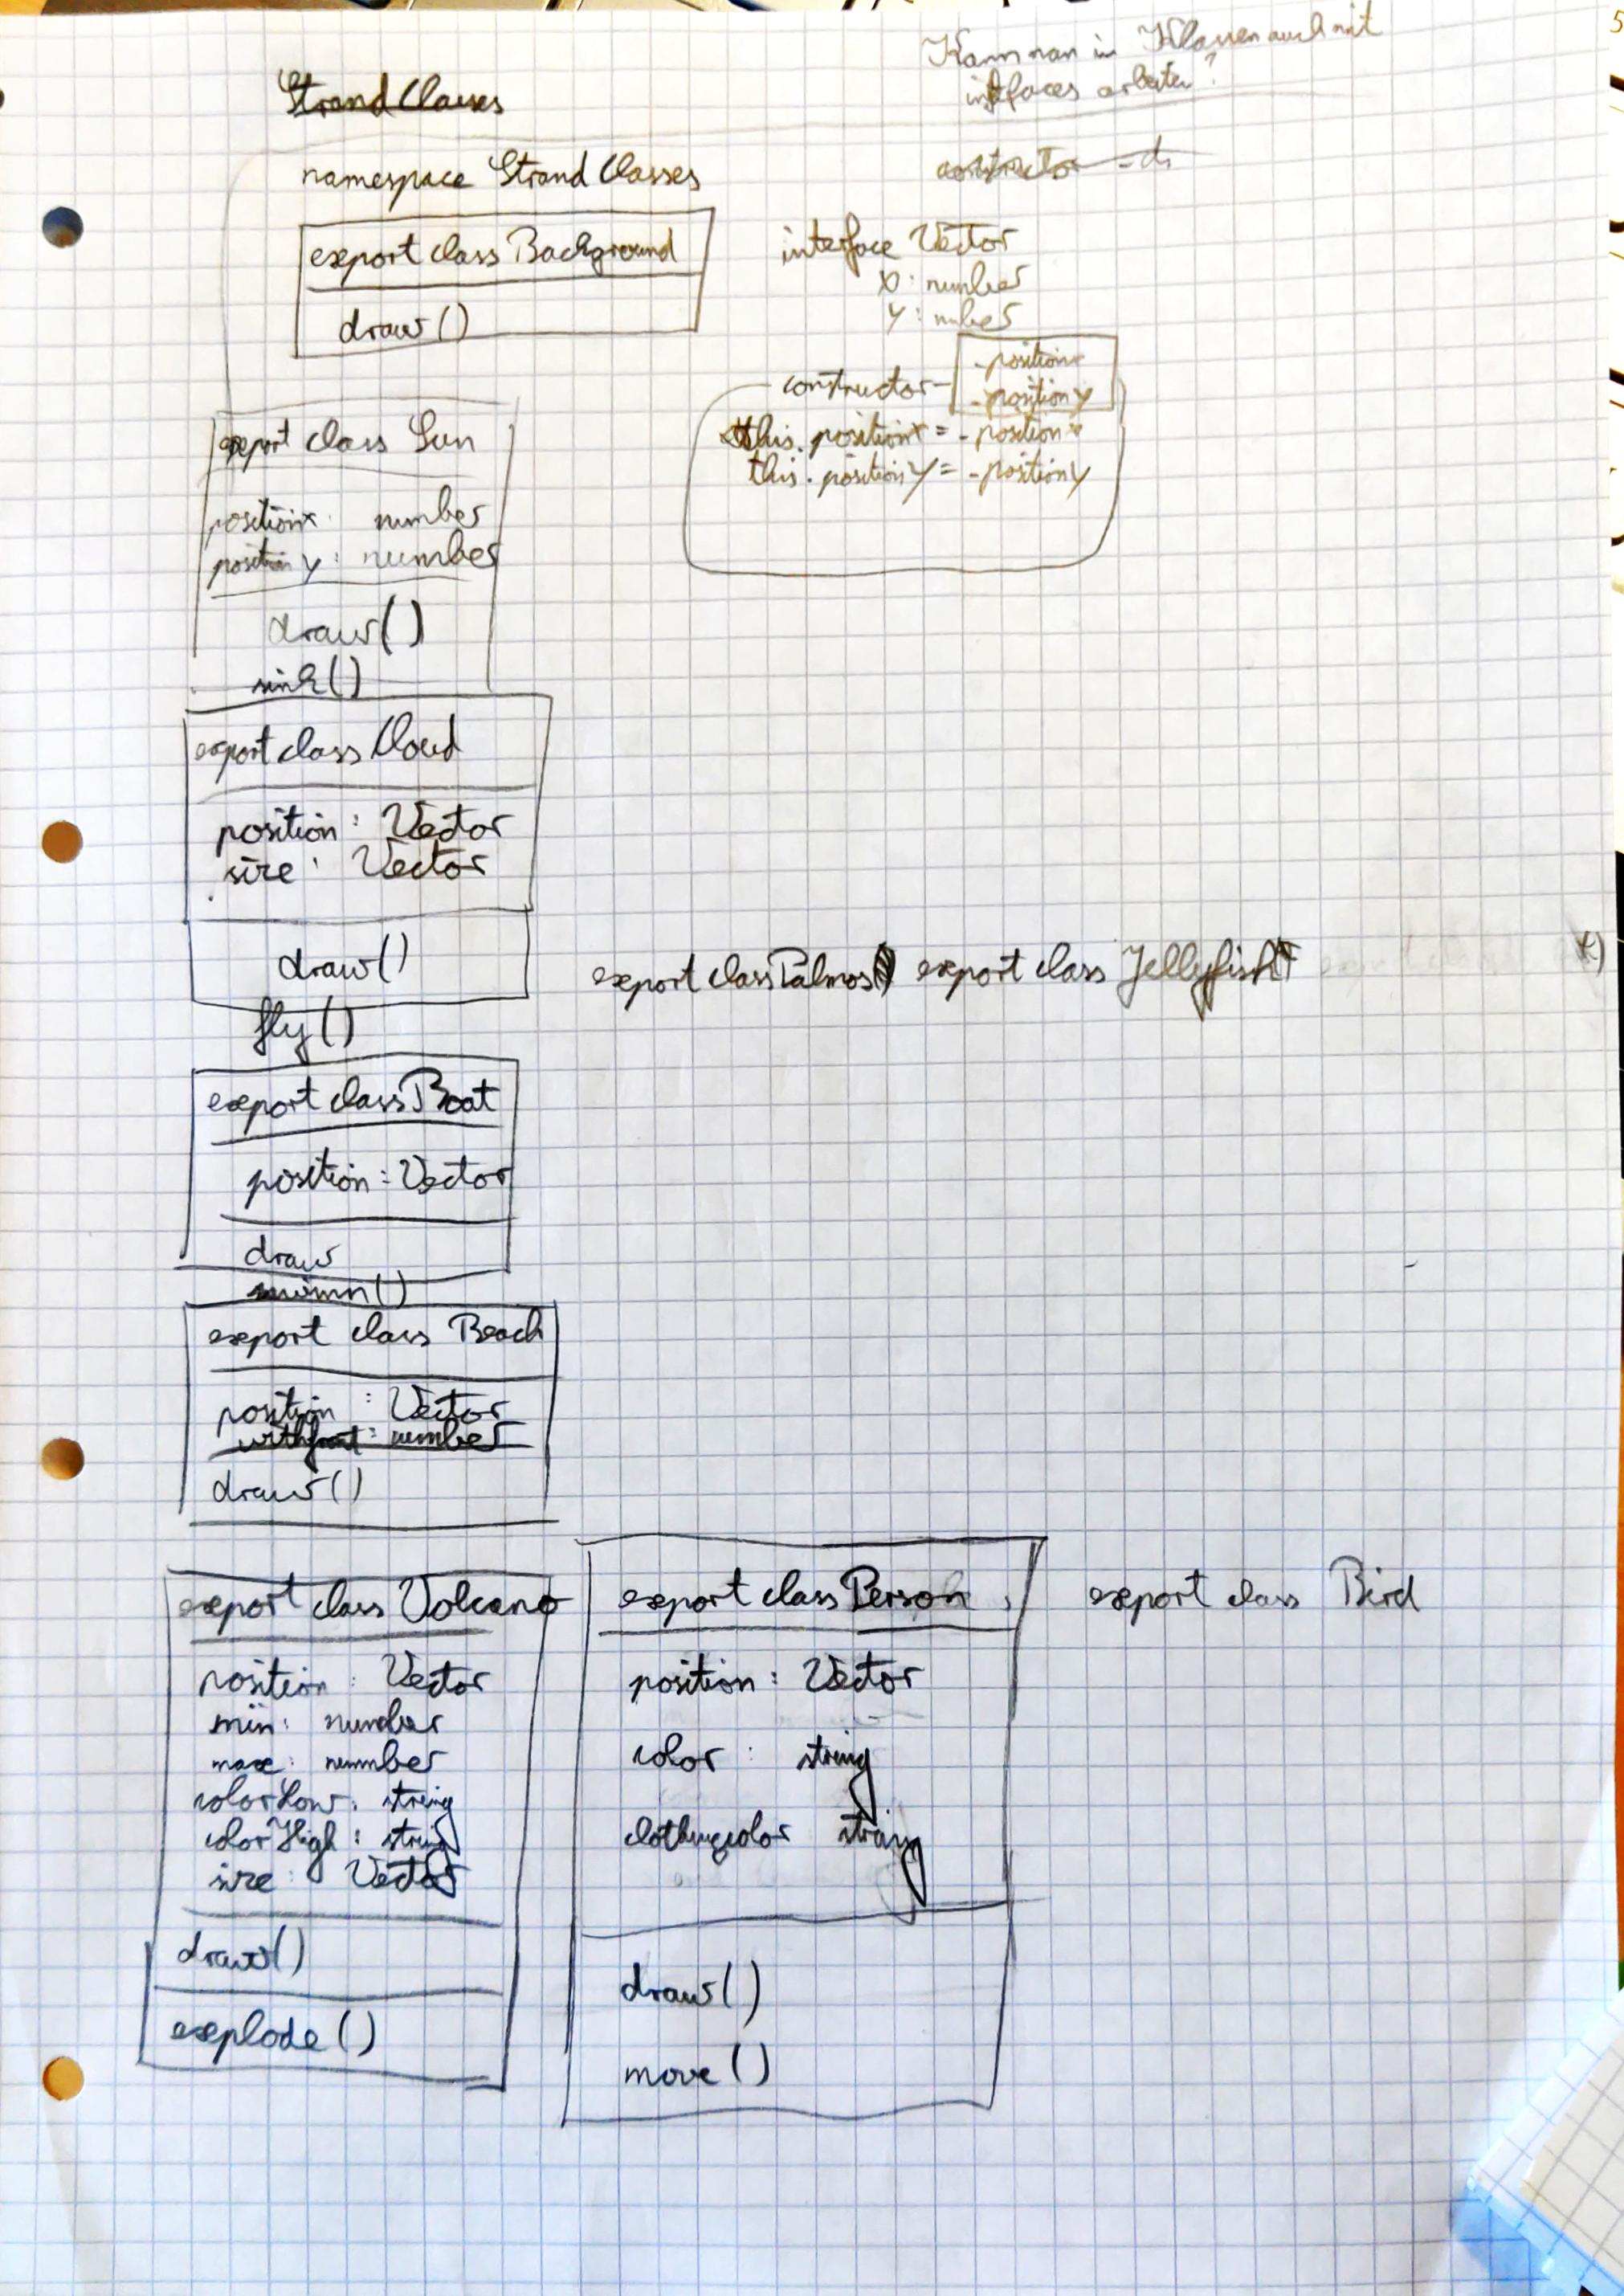 Kann man in Klassen auch mit
interfaces arbeiten?
Strand Classes
namespace Strand Classes
constructor
export class Background
draw()
interface Vector
X: number
Y: nuber
constructor
_positionx
_positiony
this.positionx = _positionx
this.positiony = _positiony
export class Sun
positionx: number
positiony: number
draw()
sink()
export class Cloud
position: Vector
size: Vector
draw()
fly()
export class Palmos
export class Jellyfish
export class Boat
position: Vector
draw
swimm()
export class Beach
position: Vector
number
draw()
export class Volcano
position: Vector
min: number
max: nummber
colorLow: string
colorHigh: string
size: Vector
draw()
explode()
export class Person
position: Vector
color: string
clothingcolor string
draw()
move()
export class Bird